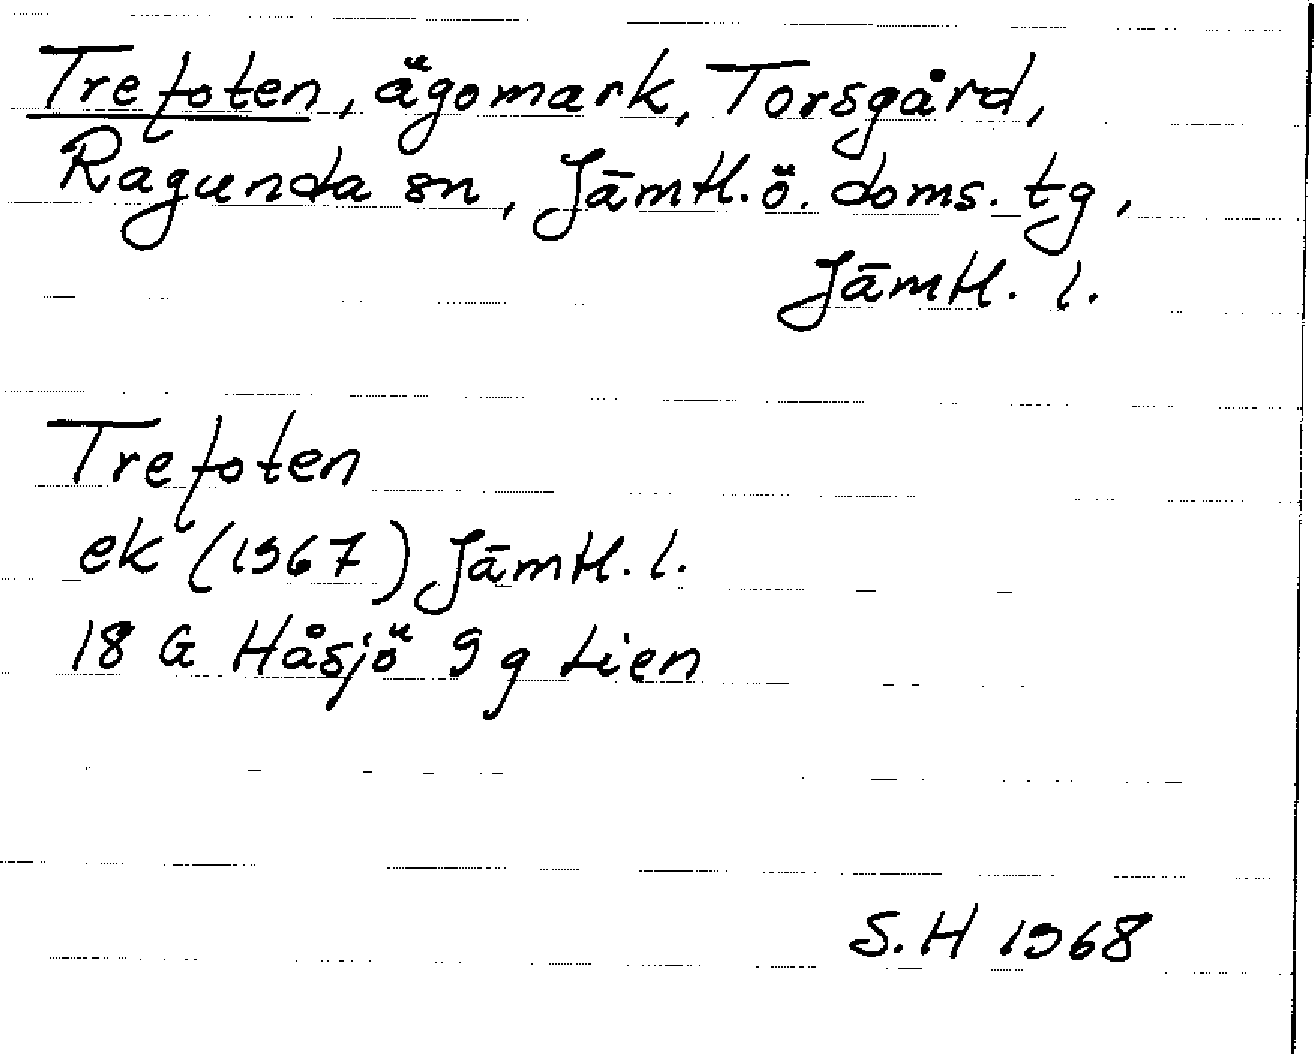 Trefoten, ägomark, Torsgård,
Ragunda sn, Jämtl. ö. doms. tg,
Jämtl. l.
Trefoten
ek (1967) Jämtl. l.
18 G Håsjö 9 g Lien
S. H 1968